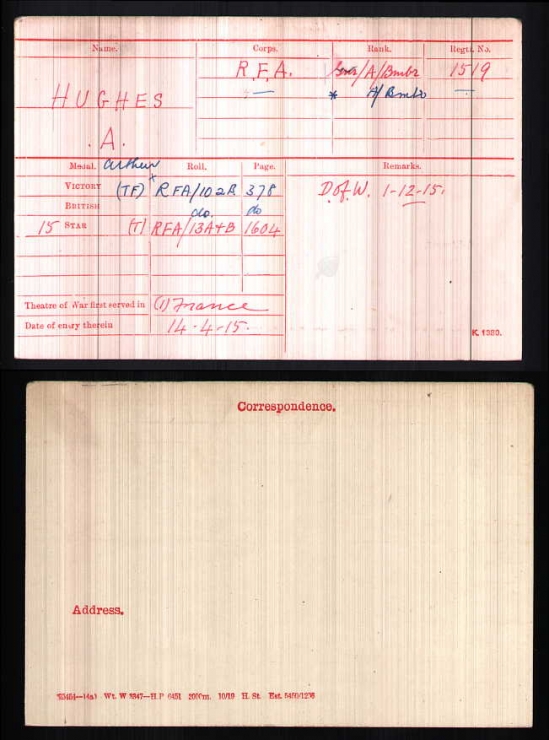 Name. Corps. Rank. Regtl. No.
R.F.A. A/Bmbr 1519
— * A/Bmbr —
HUGHES
.A.
Arthur
Medal. Roll. Page. Remarks.
VICTORY (TF) RFA/102B 378 D.of.W. 1-12-15.
BRITISH do. do
15 STAR (T) RFA/13A+B 1604
Theatre of War first served in (1) France
Date of entry therein 14-4-15.
K. 1380.
Correspondence.
Address.
Wt. W 5347—H.P 6451 10/19 H. St.